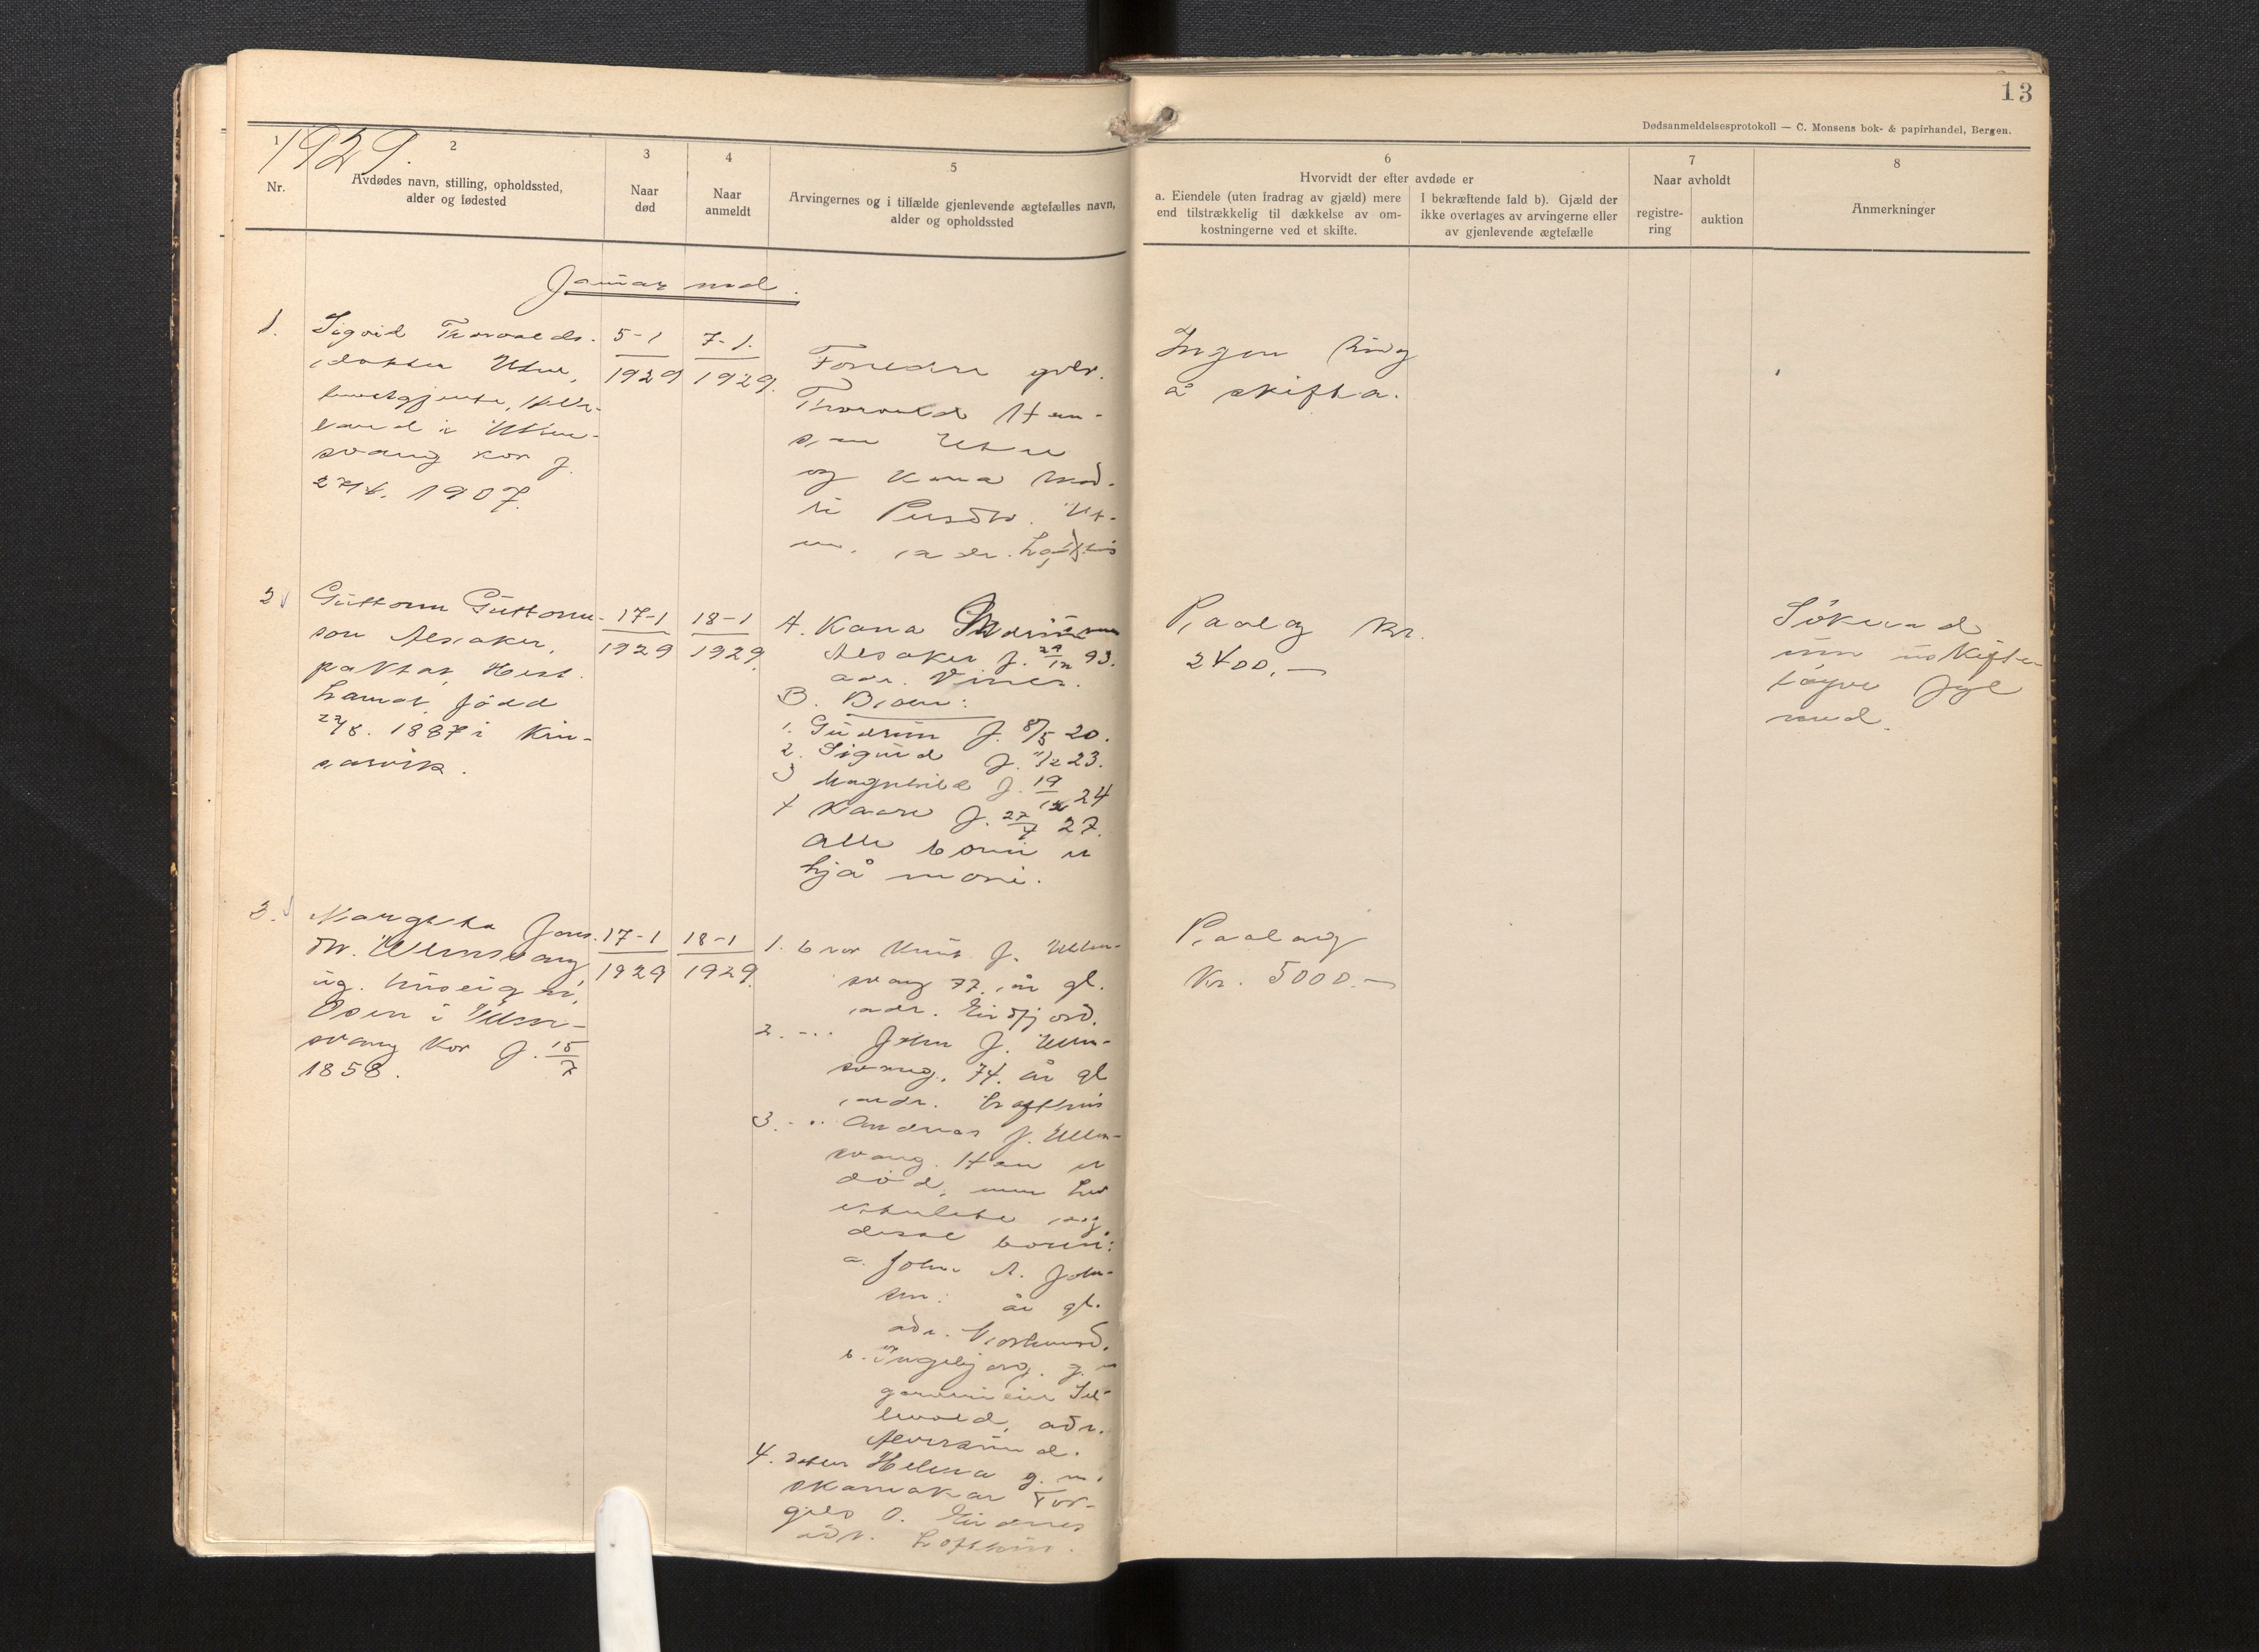 13
Dødsanmeldelsesprotokoll — C. Monsens bok- & papirhandel, Bergen.
1929.
1
Nr.
2
Avdødes navn, stilling, opholdssted,
alder og fødested
3
Naar
død
4
Naar
anmeldt
5
Arvingernes og i tilfælde gjenlevende ægtefælles navn,
alder og opholdssted
6
Hvorvidt der efter avdøde er
a. Eiendele (uten fradrag av gjæld) mere
end tilstrækkelig til dækkelse av om-
kostningerne ved et skifte.
I bekræftende fald b). Gjæld der
ikke overtages av arvingerne eller
av gjenlevende ægtefælle
7
Naar avholdt
registre-
ring
auktion
8
Anmerkninger
Januar mnd.
1.
Sigrid Thorvalds-
dotter Utne,
i Ullens-
vang kor f.
1907.
5-1
1929
7-1.
1929.
Foreldre gbr.
Thorvald Han-
son Utne
og Kana Mad-
li Persdtr. Ut-
ne, adr. Lofthus
Ingen ting
å skifta.
2
Guttorm Guttorm-
son Alsaker,
paktar, Hest-
hamar, fødd
27/8. 1887 i Kin-
sarvik.
17-1
1929
18-1
1929.
A. Kana
Alsaker f. 29/12 93.
adr. Vines.
B. Born:
1. Gudrun f. 8/5 20.
2. Sigurd f. 11/2 23.
3 Magnhild f. 19/12 24
4 Kaare f. 27/7 27.
Alle borni er
hjå mori.
Paalag kr.
2400.—
Søkend
um uskifte-
løyve fyl
med.
3.
Margreta Jons-
dtr. Ullensvang
ug. huseigar,
Opsn i Ullen-
svang kor f. 15/7
1858.
17-1
1929
18-1
1929.
1. bror Knut J. Ullen-
svang 77 år gl.
adr. Eidfjord.
2. -.. John J. Ullen-
svang, 74. år gl
adr. Lofthus
3. -.. Andreas J. Ullen-
svang. Han er
død, men hev
etterlete seg
desse born:
a. John A. John-
son: år gl.
adr.
b. Ingebjorg. g. m
adr.
Alversund.
4. syster Helena g. m.
skomakar Tor-
gils O. Eidnes
adr. Lofthus.
Paalag
Kr. 5000.—